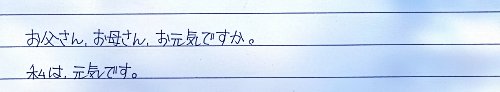 お父さん,お母さん,お元気ですか。
私は,元気です。